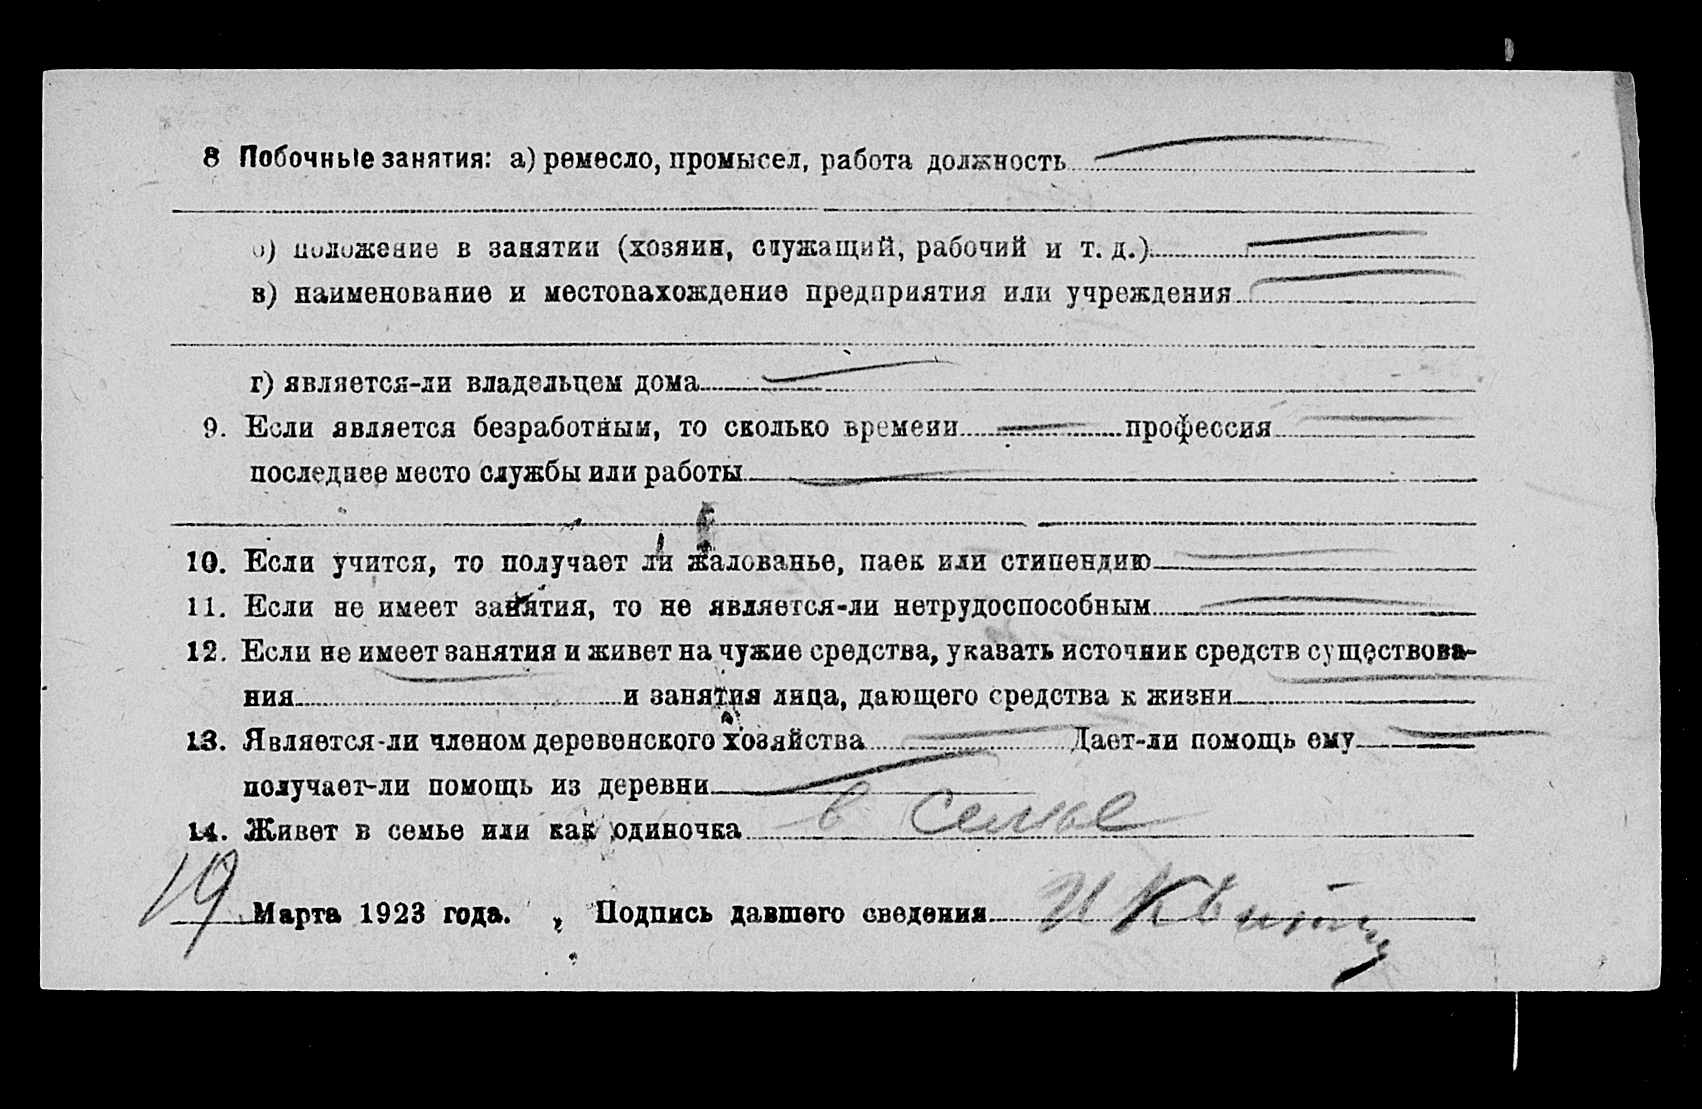 8 Побочные занятия: а) ремесло, промысел, работа должность
б) положение в занятии (хозяин, служащий, рабочий и т. д.)
в) наименование и местонахождение предприятия или учреждения
г) является-ли владельцем дома
9. Если является безработным, то сколько времени профессия
последнее место службы или работы
10. Если учится, то получает ли жалованье, паек или стипендию
11. Если не имеет занятия, то не является-ли нетрудоспособным
12. Если не имеет занятия и живет на чужие средства, указать источник средств существова-
ния и занятия лица, дающего средства к жизни
13. Является-ли членом деревенского хозяйства Дает-ли помощь ему
получает-ли помощь из деревни
14. Живет в семье или как одиночка в семье
19 Марта 1923 года. Подпись давшего сведения